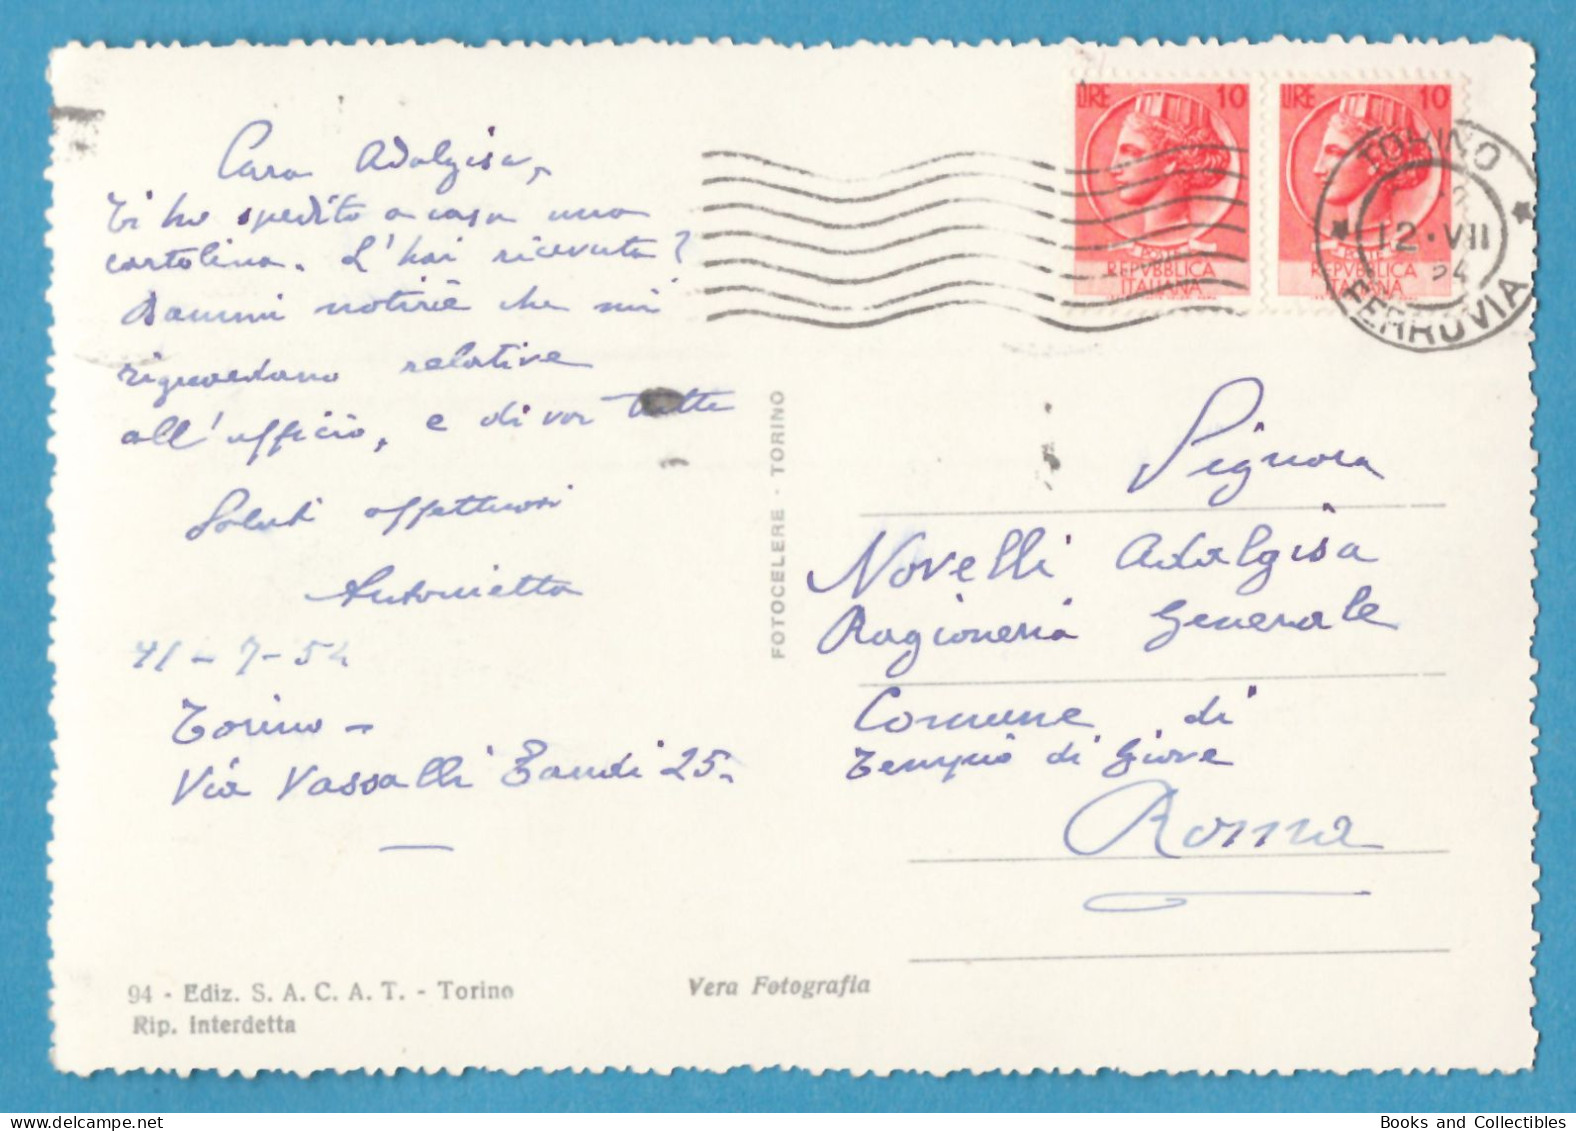 Cara Adalgisa,
Ti ho spedito a casa una
cartolina. L'hai ricevuta?
Dammi notizie che mi
riguardano relative
all'ufficio, e di voi tutte
Saluti affettuosi
Antonietta
11-7-54
Torino -
Via Vassalli Eandi 25.
94 - Ediz. S. A. C. A. T. - Torino
Rip. Interdetta
Vera Fotografia
FOTOCELERE - TORINO
LIRE 10
REPVBBLICA
ITALIANA
LIRE 10
REPVBBLICA
ITALIANA
TORINO
12·VII
54
FERROVIA
Signora
Novelli Adalgisa
Ragioneria Generale
Comune di
Tempio di Giove
Roma
Books and Collectibles